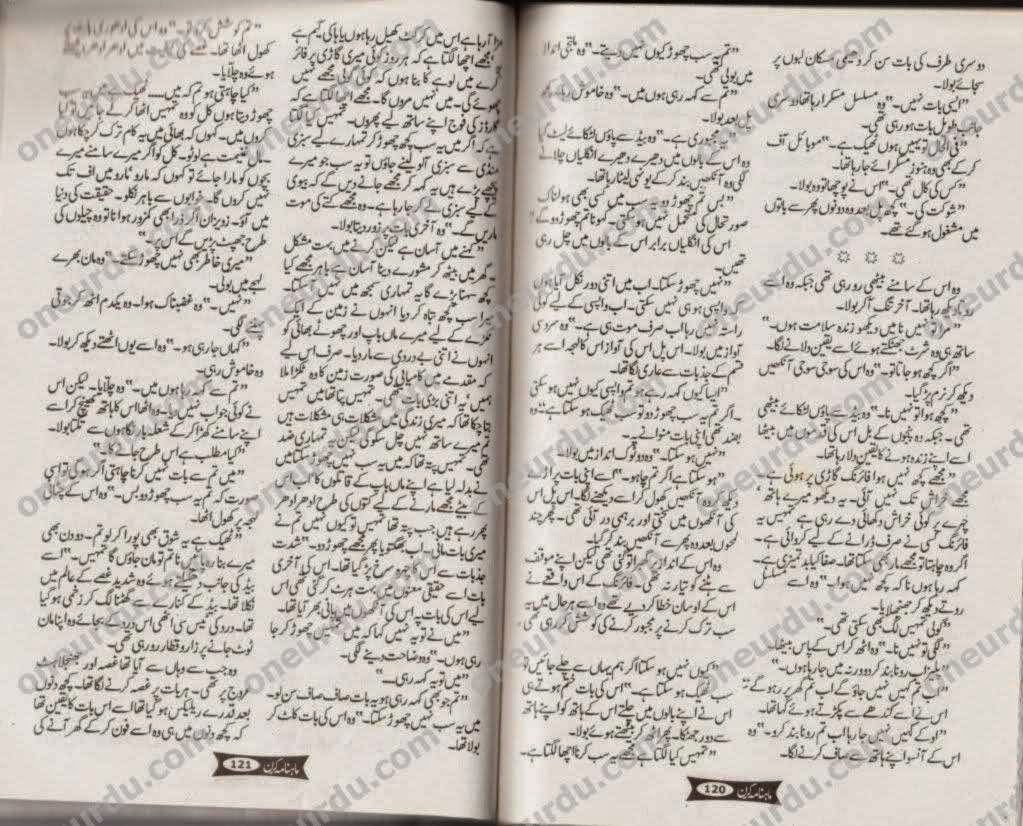 دوسری طرف کی بات سن کر دھیمی مسکان لبوں پر
سجائے بولا۔
”ایسی بات نہیں۔“ وہ مسلسل مسکرا رہا تھا دوسری
جانب طویل بات ہو رہی تھی۔
”فی الحال تو یہیں ہوں ٹھیک ہے۔“ موبائل آف
کرکے بھی وہ ہنوز مسکرائے جا رہا تھا۔
”کس کی کال تھی۔“ اس نے پوچھا تو وہ بولا۔
”شوکت کی۔“ کچھ پل بعد وہ دونوں پھر سے باتوں
میں مشغول ہو گئے تھے۔
☼ ☼ ☼
وہ اس کے سامنے بیٹھی رو رہی تھی جبکہ وہ اسے
روتا دیکھ رہا تھا۔ آخر تنگ آ کر بولا۔
”مرا تو نہیں نا میں دیکھو زندہ سلامت ہوں۔“
ساتھ ہی وہ شرٹ جھٹکتے ہوئے اسے یقین دلانے لگا۔
”اگر کچھ ہو جاتا تو۔“ وہ اس کی سوجی سوجی آنکھیں
دیکھ کر نرم پڑ گیا۔
”کچھ ہوا تو نہیں نا۔“ وہ بیڈ سے پاؤں لٹکائے بیٹھی
تھی۔ جبکہ وہ پنجوں کے بل اس کی قدموں میں بیٹھا
اسے اپنے زندہ ہونے کا یقین دلا رہا تھا۔
”مجھے کچھ نہیں ہوا فائرنگ گاڑی پر ہوئی ہے۔
مجھے خراش تک نہیں آئی۔ یہ دیکھو میرے ہاتھ
چہرے پر کوئی خراش دکھائی دے رہی ہے تمہیں یہ
فائرنگ کسی نے صرف ڈرانے کے لیے کروائی ہے۔
اگر وہ چاہتا تو مجھے مار بھی سکتا تھا۔
کہہ رہا ہوں نا کہ کچھ نہیں ہوا۔“ وہ اسے مسلسل
روتے دیکھ کر جھنجلایا۔
”گولی تمہیں لگ بھی سکتی تھی۔“
”لگی تو نہیں نا۔“ وہ اٹھ کر اس کے پاس بیٹھا۔
”پلیز اب رونا بند کرو ورنہ میں جا رہا ہوں۔“
”اب تم کہیں نہیں جاؤ گے اب تم گھر پر رہو گے۔“
اس نے اسے کندھے سے پکڑتے ہوئے کہا تھا۔
”اوکے کہیں نہیں جا رہا اب تم رونا بند کرو۔“ وہ
اس کے آنسو اپنے ہاتھ سے صاف کرنے لگا۔
”تم یہ سب چھوڑ کیوں نہیں دیتے۔“ وہ ملتجی انداز
میں بولی تھی۔
”تم سے کہہ رہی ہوں میں۔“ وہ خاموش رہا۔ کچھ
پل بعد بولا۔
”یہ مجبوری ہے۔“ وہ بیڈ سے پاؤں لٹکائے لیٹ گیا
وہ اس کے بالوں میں دھیرے دھیرے انگلیاں چلانے
لگی وہ آنکھیں بند کر کے یونہی لیٹا رہا تھا۔
”بس تم چھوڑ دو۔ یہ سب میں کسی بھی ہولناک
صورتحال کی متحمل نہیں ہو سکتی۔ کہو نا تم چھوڑ دو گے۔“
اس کی انگلیاں برابر اس کے بالوں میں چل رہی
تھیں۔
”نہیں چھوڑ سکتا۔ اب میں اتنی دور نکل گیا ہوں
کہ واپسی ہو ہی نہیں سکتی۔ اب واپسی کے لیے کوئی
راستہ نہیں رہا اب صرف موت ہی ہے۔“ وہ سرد سی
آواز میں بولا۔ اس پل اس کی آواز اس کا لہجہ اسے ہر
قسم کے جذبات سے عاری لگا تھا۔
”ایسا کیوں کہہ رہے ہو تم واپسی کیوں نہیں ہو سکتی
۔ اگر تم یہ سب چھوڑ دو تو سب ٹھیک ہو سکتا ہے۔“ وہ
بضد تھی اپنی بات منوانے پہ۔
”نہیں ہو سکتا۔“ وہ دو ٹوک انداز میں بولا۔
”ہو سکتا ہے اگر تم چاہو۔“ اسے اپنی بات پر اڑا
دیکھ کر وہ آنکھیں کھول کر اسے دیکھنے لگا۔ اس پل اس
کی آنکھوں میں سختی اور برہمی در آئی تھی۔ پھر چند
لمحوں بعد وہ پھر سے آنکھیں بند کر گیا۔
وہ اس کے انداز پر تھرا تو گئی تھی لیکن اپنے موقف
سے ہٹنے کو تیار نہ تھی۔ فائرنگ کے اس واقعے نے
اس کے اوسان خطا کر دیے تھے وہ اسے ہر حال میں یہ
سب ترک کرنے پر مجبور کرنے کی کوشش کر رہی تھی
۔
”کیوں نہیں ہو سکتا اگر ہم یہاں سے چلے جائیں تو
سب ٹھیک ہو سکتا ہے۔“ اس کی بات ختم ہوتے ہی
اس نے اپنے بالوں میں چلتے اس کے ہاتھ کو اپنے ہاتھ
سے دور جھٹکا۔ پھر اٹھ کر بیٹھتے ہوئے بولا۔
”تمہیں کیا لگتا ہے مجھے یہ سب کرنا اچھا لگتا ہے۔
ماہنامہ کرن 120
مزا آ رہا ہے اس میں کرکٹ کھیل رہا ہوں یا ہاکی گیم ہے
مجھے اچھا لگتا ہے کہ ہر روز کوئی میری گاڑی پر فائر
کرے میں لوہے کا بنا ہوں کہ کوئی گولی مجھے نہیں
چھوئے گی۔ میں نہیں مروں گا۔ مجھے اچھا لگتا ہے کہ
گارڈز کی فوج اپنے ساتھ لیے پھروں۔ تمہیں کیا لگتا
ہے کہ اگر میں یہ سب کچھ چھوڑ کر تمہارے لیے سبزی
منڈی سے سبزی آلو لینے جاؤں تو یہ سب جو میرے
پیچھے پڑے ہیں یہ کہہ کر مجھے جانے دیں گے کہ بیوی
کے لیے سبزی لے کر جا رہا ہے۔ وہ مجھے کتے کی موت
ماریں گے۔“ وہ آخری بات پر زور دیتا بولا۔
”کہنے میں آسان ہے لیکن کرنے میں بہت مشکل
یہ گھر میں بیٹھ کر مشورے دینا آسان ہے باہر مجھے کیا
کچھ سہنا پڑے گا یہ تمہاری سمجھ میں نہیں آ سکتا۔
میرا سب کچھ تباہ کر دیا انہوں نے زمین کے ایک
ٹکڑے کے لیے میرے ماں باپ اور چھوٹے بھائی کو
انہوں نے اتنی بے دردی سے مار دیا۔ صرف اس لیے
کہ مقدمے میں کامیابی کی صورت زمین کا وہ ٹکڑا ملا
ہمیں یہ اتنی بڑی بات تھی۔ تمہیں پتا تھا میں تمہیں
بتا چکا تھا کہ میری زندگی میں مشکلات ہی مشکلات ہیں
تم میرے ساتھ نہیں چل سکو گی لیکن یہ تمہاری ضد
تھی۔ تمہیں پتہ تھا کہ میں یہ سب نہیں چھوڑ سکتا۔ میں
نے بدلہ لیا ہے اپنے ماں باپ کے قاتلوں کا اب اس
کے بیٹے مجھے مارنے کے لیے کتوں کی طرح ادھر ادھر
پھر رہے ہیں جب پتہ تھا تمہیں تو کیوں نہیں تم نے
میری بات مانی۔ اب بھگتو یا پھر مجھے چھوڑ دو۔“ شدت
جذبات سے اس کا چہرہ سرخ پڑ گیا تھا۔ اس کی آخری
بات اسے حقیقی معنوں میں بہت ہرٹ کر گئی تھی اس
لیے اس کی بات پہ اس کی آنکھوں میں پانی بھر آیا تھا۔
”میں نے تو یہ نہیں کہا کہ میں تمہیں چھوڑ کر جا
رہی ہوں۔“ وہ وضاحت دینے لگی۔
”میں تو یہ کہہ رہی۔“
”تم جو بھی کہہ رہی ہو یہ بات صاف صاف سن لو۔
میں یہ سب نہیں چھوڑ سکتا۔“ وہ اس کی بات کاٹ کر
بولا تھا۔
”تم کوشش کرو تو۔“ وہ اس کی ادھوری
کھول اٹھا تھا۔ غصے کی
ہوئے وہ چلایا۔
”کیا چاہتی ہو تم کہ میں۔۔۔ ٹھیک ہے میں یہ سب
چھوڑ دیتا ہوں کل کو وہ تمہیں اٹھا کر لے جائیں تو کیا
کروں میں۔ کہوں کہ بھائی میں یہ کام ترک کر چکا ہوں
مال غنیمت ہے لوٹو۔ کل کو اگر میرے سامنے میرے
بچوں کو مارا جائے تو کہوں کہ مارو مارو میں اف تک
نہیں کروں گا۔ خوابوں سے باہر نکلو۔ حقیقت کی دنیا
میں آؤ۔ زویزان اگر ذرا بھی کمزور ہوا نا تو وہ چیلوں کی
طرح جھپٹ پڑیں گے اس پر۔“
”میری خاطر بھی نہیں چھوڑ سکتے۔“ وہ مان بھرے
لہجے میں بولی۔
”نہیں۔“ وہ غضبناک ہوا۔ وہ یکدم اٹھ کر جوتی
پہننے لگی۔
”کہاں جا رہی ہو۔“ وہ اسے یوں اٹھتے دیکھ کر بولا۔
وہ خاموش رہی۔
”تم سے کہہ رہا ہوں میں۔“ وہ چلایا۔ لیکن اس
نے کوئی جواب نہیں دیا۔ وہ اٹھا اس کا ہاتھ کھینچ کر اسے
اپنے سامنے کھڑا کر کے شعلہ بار نگاہوں سے تکتا بولا۔
”کیا مطلب ہے اس طرح جانے کا۔“
”میں تم سے بات نہیں کرنا چاہتی اگر ہو گی تو اسی
صورت کہ تم یہ سب چھوڑ دو بس۔“ وہ اس کے
لہجہ پر کھول اٹھا۔
”ٹھیک ہے یہ شوق بھی پورا کر لو تم۔ دو دن بھی
میرے بنا رہ پائیں نا تم تو مان جاؤں گا تمہیں۔“ اسے
بیڈ کی جانب دھکیلتے ہوئے وہ شدید غصے کے عالم میں
نکلا تھا۔ بیڈ کے کنارے سے گھٹنا لگ کر زخمی ہو گیا
تھا۔ درد کی ٹیس سی اٹھی اس درد کے بجائے وہ اپنا مان
ٹوٹ جانے پر زار و قطار رو رہی تھی۔
وہ جب سے وہاں سے آیا تھا غصہ اور جھنجلاہٹ
عروج پر تھی۔ ہر بات پر غصہ کرنے لگا تھا۔ کچھ دنوں
بعد قدرے ریلیکس ہو گیا تھا اسے اس بات کا یقین تھا
کہ کچھ دنوں میں ہی وہ اسے فون کر کے گھر آنے کی
ماہنامہ کرن 121
oneurdu.com